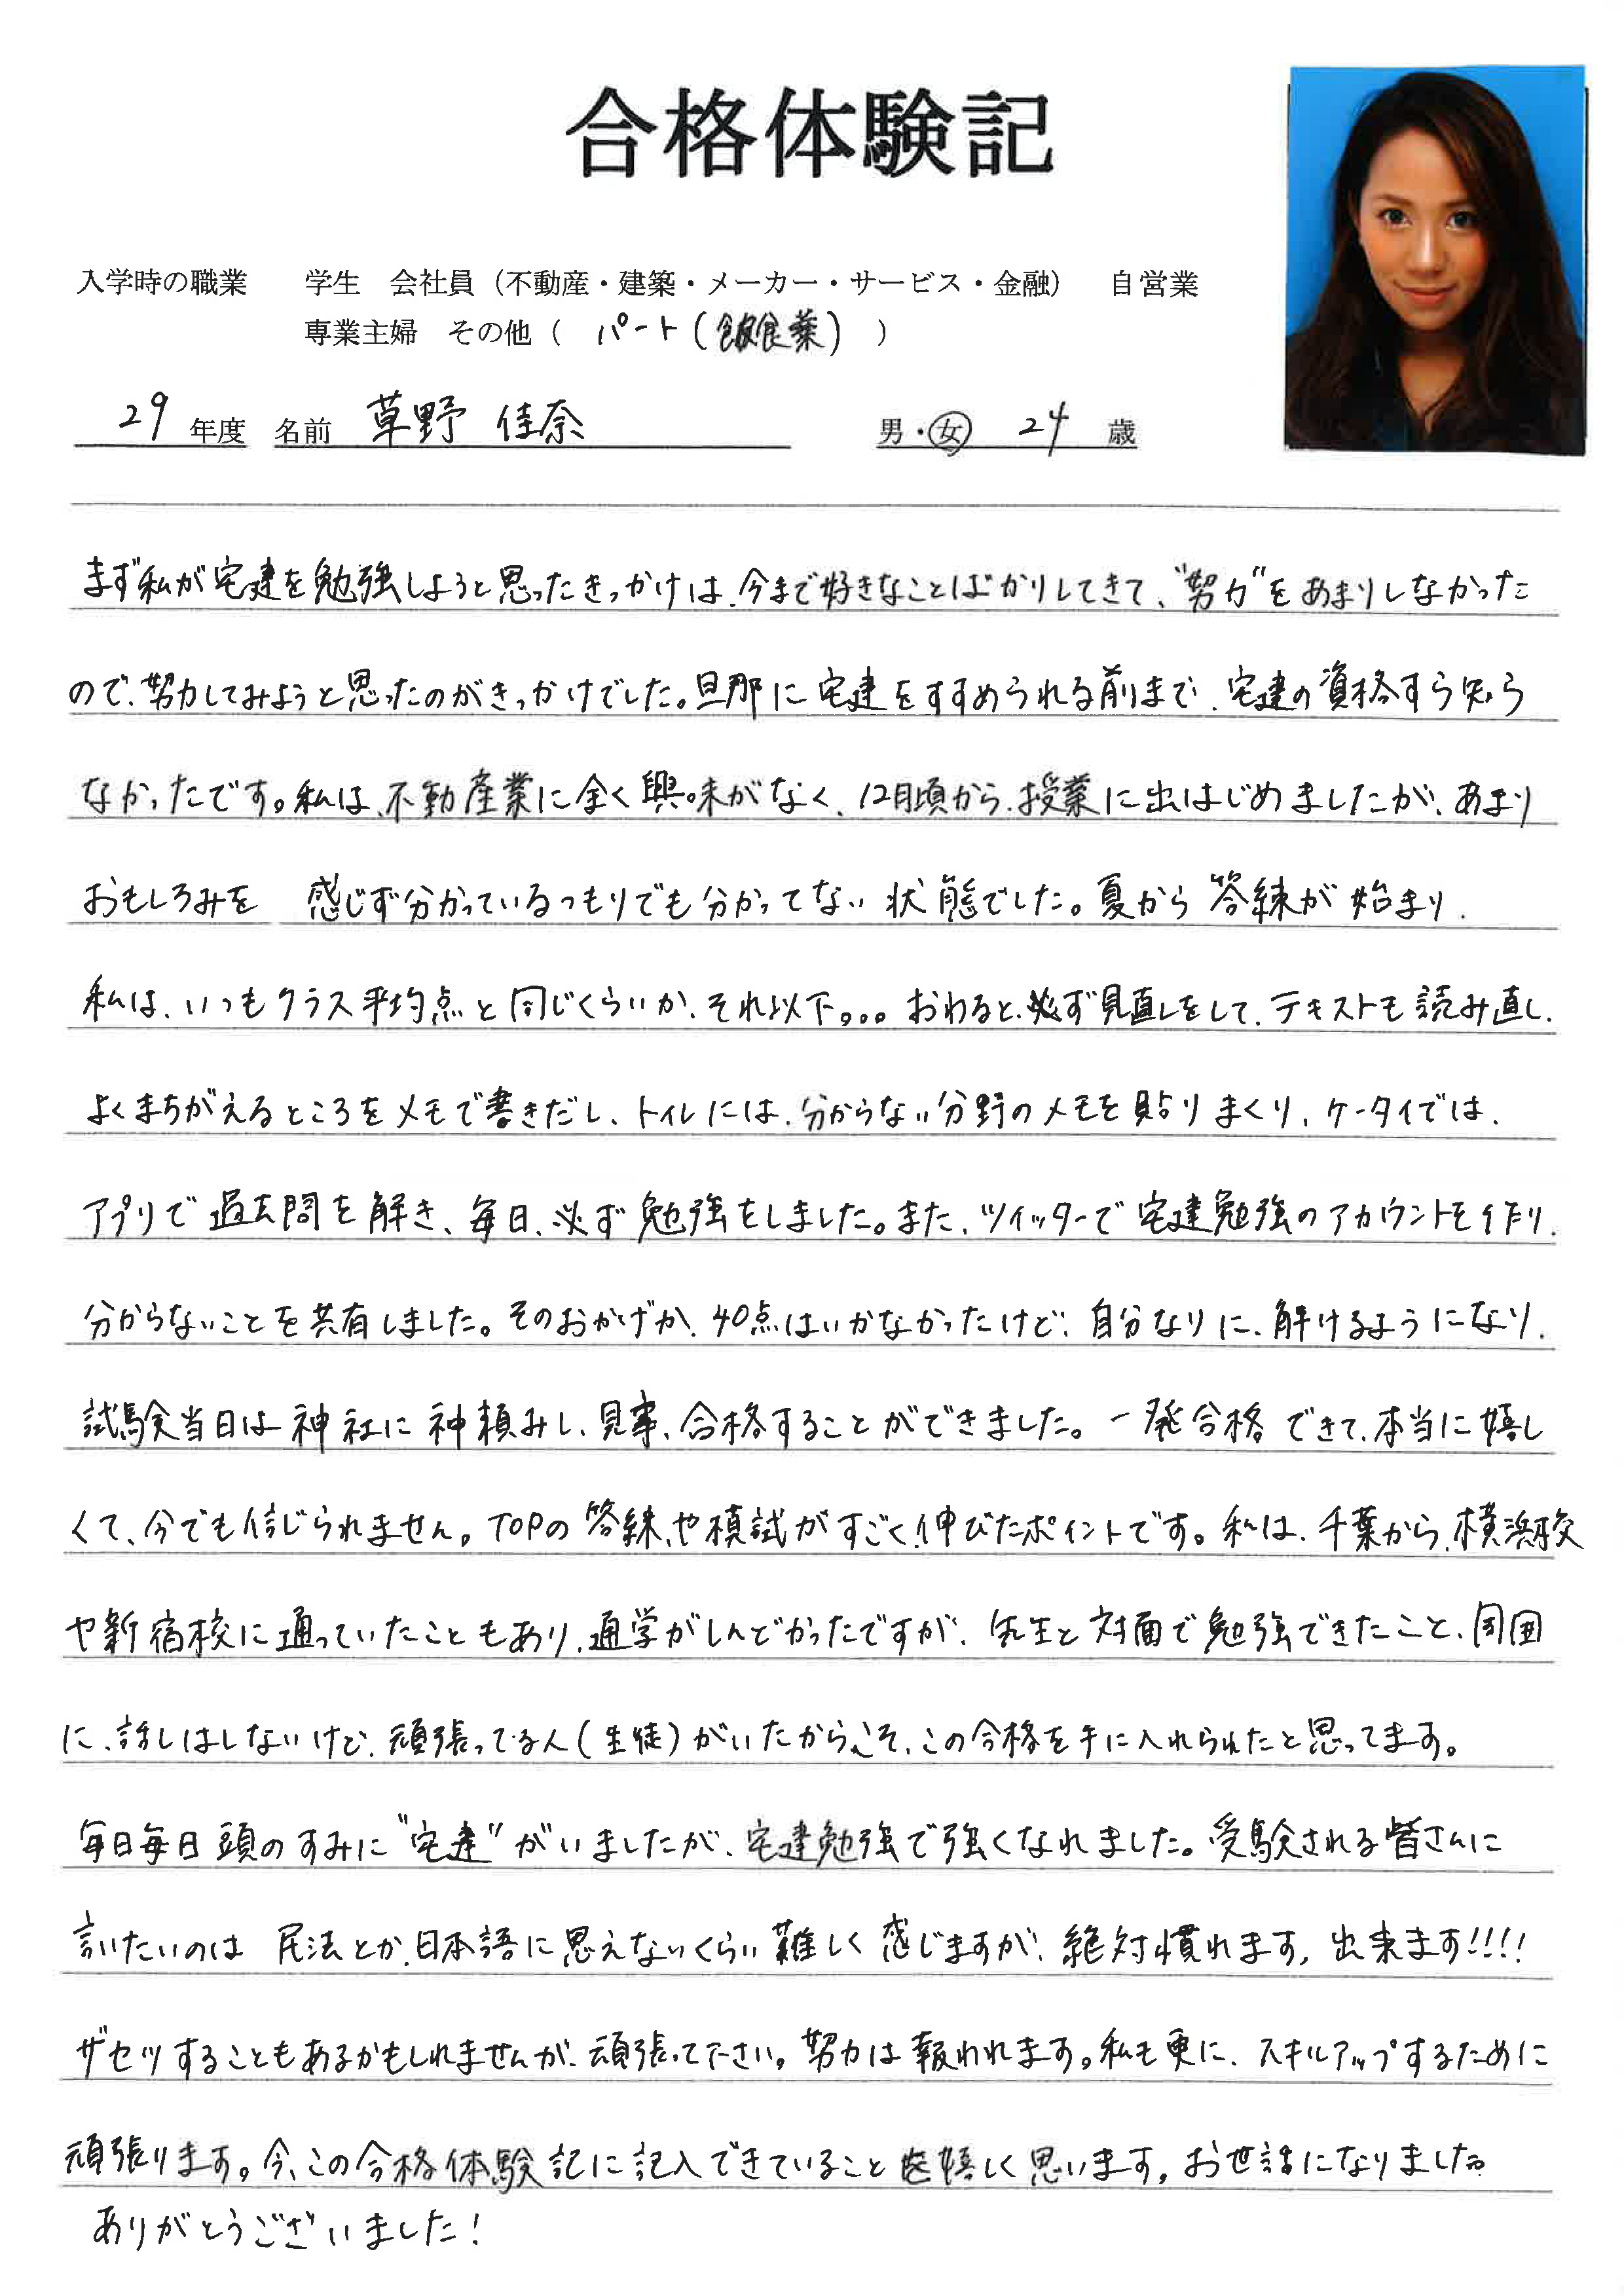 合格体験記
入学時の職業　学生　会社員（不動産・建築・メーカー・サービス・金融）　自営業
専業主婦　その他（　パート（飲食業）　）
29 年度　名前　草野 佳奈　男・女　24 歳
まず私が宅建を勉強しようと思ったきっかけは、今まで好きなことばかりしてきて、"努力"をあまりしなかった
ので、努力してみようと思ったのがきっかけでした。旦那に宅建をすすめられる前まで、宅建の資格すら知ら
なかったです。私は、不動産業に全く興味がなく、12月頃から、授業に出はじめましたが、あまり
おもしろみを　感じず分かっているつもりでも分かってない状態でした。夏から答練が始まり、
私は、いつもクラス平均点と同じくらいか、それ以下。。。おわると、必ず見直しをして、テキストも読み直し、
よくまちがえるところをメモで書きだし、トイレには、分からない分野のメモを貼りまくり、ケータイでは、
アプリで過去問を解き、毎日、必ず勉強をしました。また、ツイッターで宅建勉強のアカウントを作り、
分からないことを共有しました。そのおかげか、40点はいかなかったけど、自分なりに、解けるようになり、
試験当日は神社に神頼みし、見事、合格することができました。一発合格できて、本当に嬉し
くて、今でも信じられません。TOPの答練や模試がすごく、伸びたポイントです。私は、千葉から、横浜校
や新宿校に通っていたこともあり、通学がしんどかったですが、先生と対面で勉強できたこと、周囲
に、話しはしないけど、頑張ってる人（生徒）がいたからこそ、この合格を手に入れられたと思ってます。
毎日毎日頭のすみに"宅建"がいましたが、宅建勉強で強くなれました。受験される皆さんに
言いたいのは　民法とか、日本語に思えないくらい難しく感じますが、絶対慣れます、出来ます!!!!
ザセツすることもあるかもしれませんが、頑張って下さい。努力は報われます。私も更に、スキルアップするために
頑張ります。今、この合格体験記に記入できていること嬉しく思います。お世話になりました。
ありがとうございました！